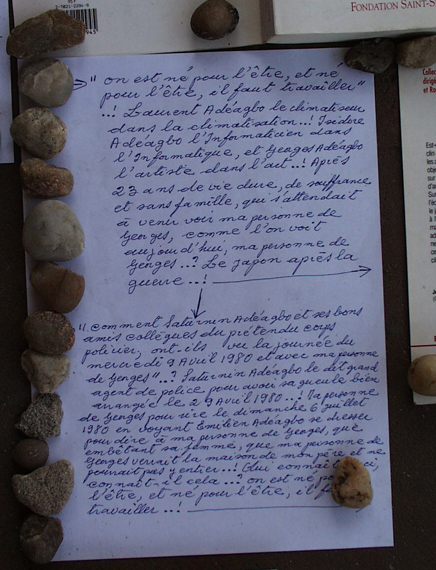 FONDATION SAINT-S
" on est né pour l'être, et né
pour l'être, il faut travailler"
..! Laurent Adéagbo le climatiseur
dans la climatisation..! Isidore
Adéagbo l'Informaticien dans
l'Informatique, et Georges Adéagbo
l'artiste, dans l'art..! Après
23 ans de vie dure, de souffrance
et sans famille, qui s'attendait
à venir voir ma personne de
Georges, comme l'on voit
aujourd'hui, ma personne de
Georges..? Le Japon après la
guerre..!
"Comment Saturnin Adéagbo et ses bons
amis collègues du prétendu corps
policier, ont-ils vu la journée du
mercredi 9 Avril 1980 et avec ma personne
de Georges"..? Saturnin Adéagbo le dit grand
agent de police pour avoir sa gueule bien
arrangé le 29 Avril 1980..! Ma personne
de Georges pour dire le dimanche 6 juillet
1980 en voyant Emilien Adéagbo se dresser
pour dire à ma personne de Georges, que
embêtant sa femme, que ma personne de
Georges verrait la maison de mon père et ne
pourrait pas y entrer..! Qui connaît ci,
connaît-il cela...? on est né
l'être, et né pour l'être, il
travailler...!